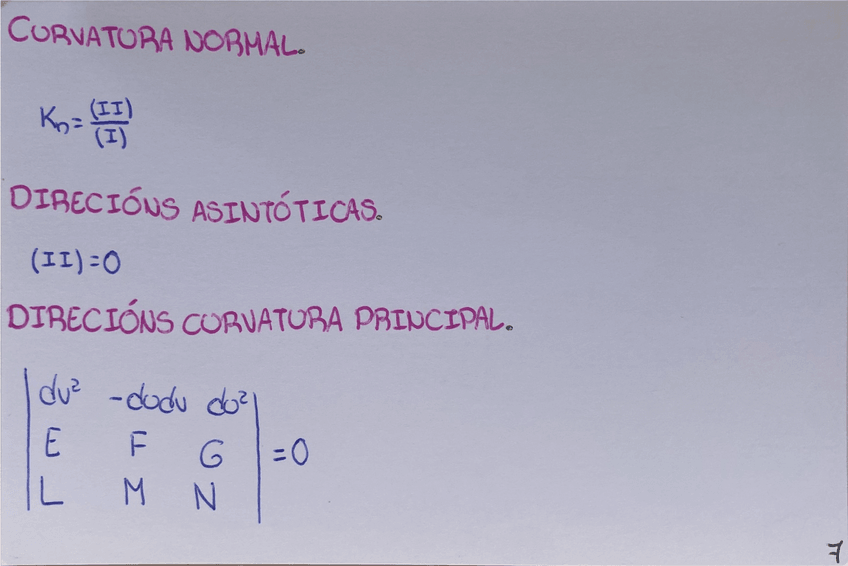 CURVATURA NORMAL.
Kn = (II)/(I)
DIRECIÓNS ASINTÓTICAS.
(II) = 0
DIRECIÓNS CURVATURA PRINCIPAL.
| dv² -dudv du² |
| E F G | = 0
| L M N |
7